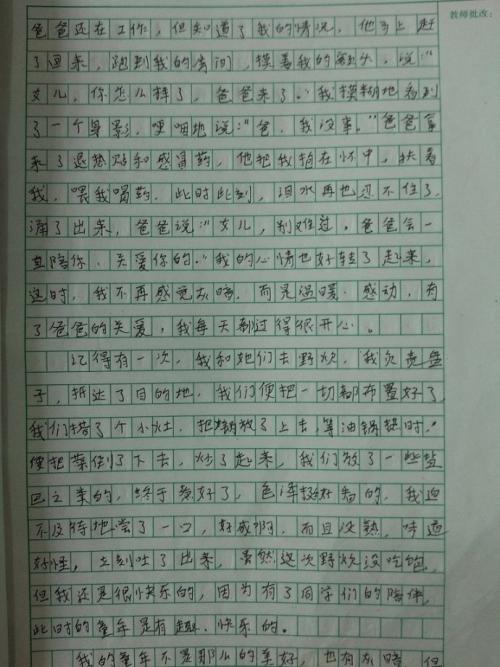 教师批改:
爸爸还在工作，但知道了我的情况，他马上赶
了回来，跑到我的房间，摸着我的额头，说:"
女儿，你怎么样了，爸爸来了。"我模糊地看到
了一个身影，哽咽地说:"爸，我没事。"爸爸拿
来了退热贴和感冒药，他把我抱在怀中，扶着
我，喂我喝药，此时此刻，泪水再也忍不住了，
涌了出来，爸爸说:"女儿，别难过，爸爸会一
直陪你、关爱你的。"我的心情也好转了起来，
这时，我不再感觉灰暗，而是温暖、感动，有
了爸爸的关爱，我每天都过得很开心。
记得有一次，我和她们去野炊，我负责盘
子，抵达了目的地，我们便把一切都布置好了，
我们搭了个小灶，把锅放了上去，等油锅热时，
便把菜倒了下去，炒了起来，我们放了一些盐
之类的，终于炒好了，色泽挺好看的，我迫
不及待地尝了一口，好咸啊，而且没熟，味道
好怪，立刻吐了出来，虽然这次野炊没吃饱，
但我还是很快乐的，因为有了同学们的陪伴，
此时的童年是有趣、快乐的。
我的童年不是那么的美好，也有灰暗，但